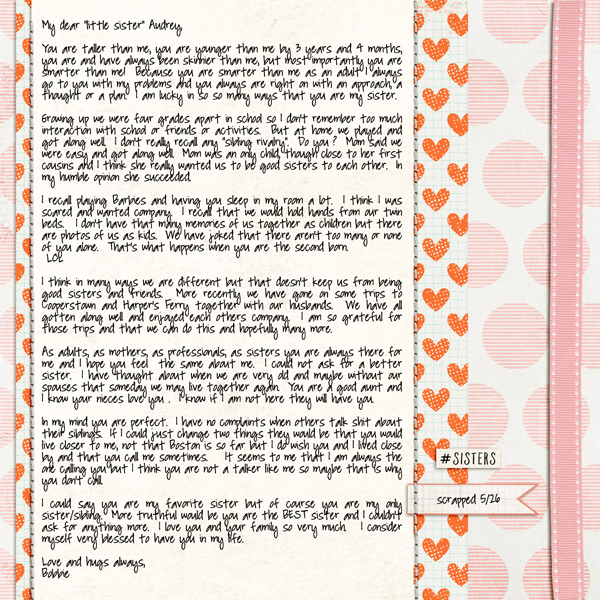 My dear "little sister" Audrey,
You are taller than me, you are younger than me by 3 years and 4 months,
you are and have always been skinnier than me, but most importantly you are
smarter than me! Because you are smarter than me as an adult I always
go to you with my problems and you always are right on with an approach, a
thought or a plan. I am lucky in so so many ways that you are my sister.
Growing up we were four grades apart in school so I don't remember too much
interaction with school or friends or activities. But at home we played and
got along well. I don't really recall any "sibling rivalry". Do you? Mom said we
were easy and got along well. Mom was an only child, though close to her first
cousins and I think she really wanted us to be good sisters to each other. In
my humble opinion she succeeded.
I recall playing Barbies and having you sleep in my room a lot. I think I was
scared and wanted company. I recall that we would hold hands from our twin
beds. I don't have that many memories of us together as children but there
are photos of us as kids. We have joked that there aren't too many or none
of you alone. That's what happens when you are the second born.
LOL
I think in many ways we are different but that doesn't keep us from being
good sisters and friends. More recently we have gone on some trips to
Cooperstown and Harper's Ferry together with our husbands. We have all
gotten along well and enjoyed each others company. I am so grateful for
those trips and that we can do this and hopefully many more.
As adults, as mothers, as professionals, as sisters you are always there for
me and I hope you feel the same about me. I could not ask for a better
sister. I have thought about when we are very old and maybe without our
spouses that someday we may live together again. You are a good aunt and
I know your nieces love you. I know if I am not here they will have you.
In my mind you are perfect. I have no complaints when others talk shit about
their siblings. If I could just change two things they would be that you would
live closer to me, not that Boston is so far but I do wish you and I lived close
by and that you call me sometimes. It seems to me that I am always the
one calling you but I think you are not a talker like me so maybe that is why
you don't call.
I could say you are my favorite sister but of course you are my only
sister/sibling! More truthful would be you are the BEST sister and I couldn't
ask for anything more. I love you and your family so very much. I consider
myself very blessed to have you in my life.
Love and hugs always,
Bobbie
#SISTERS
scrapped 5/26